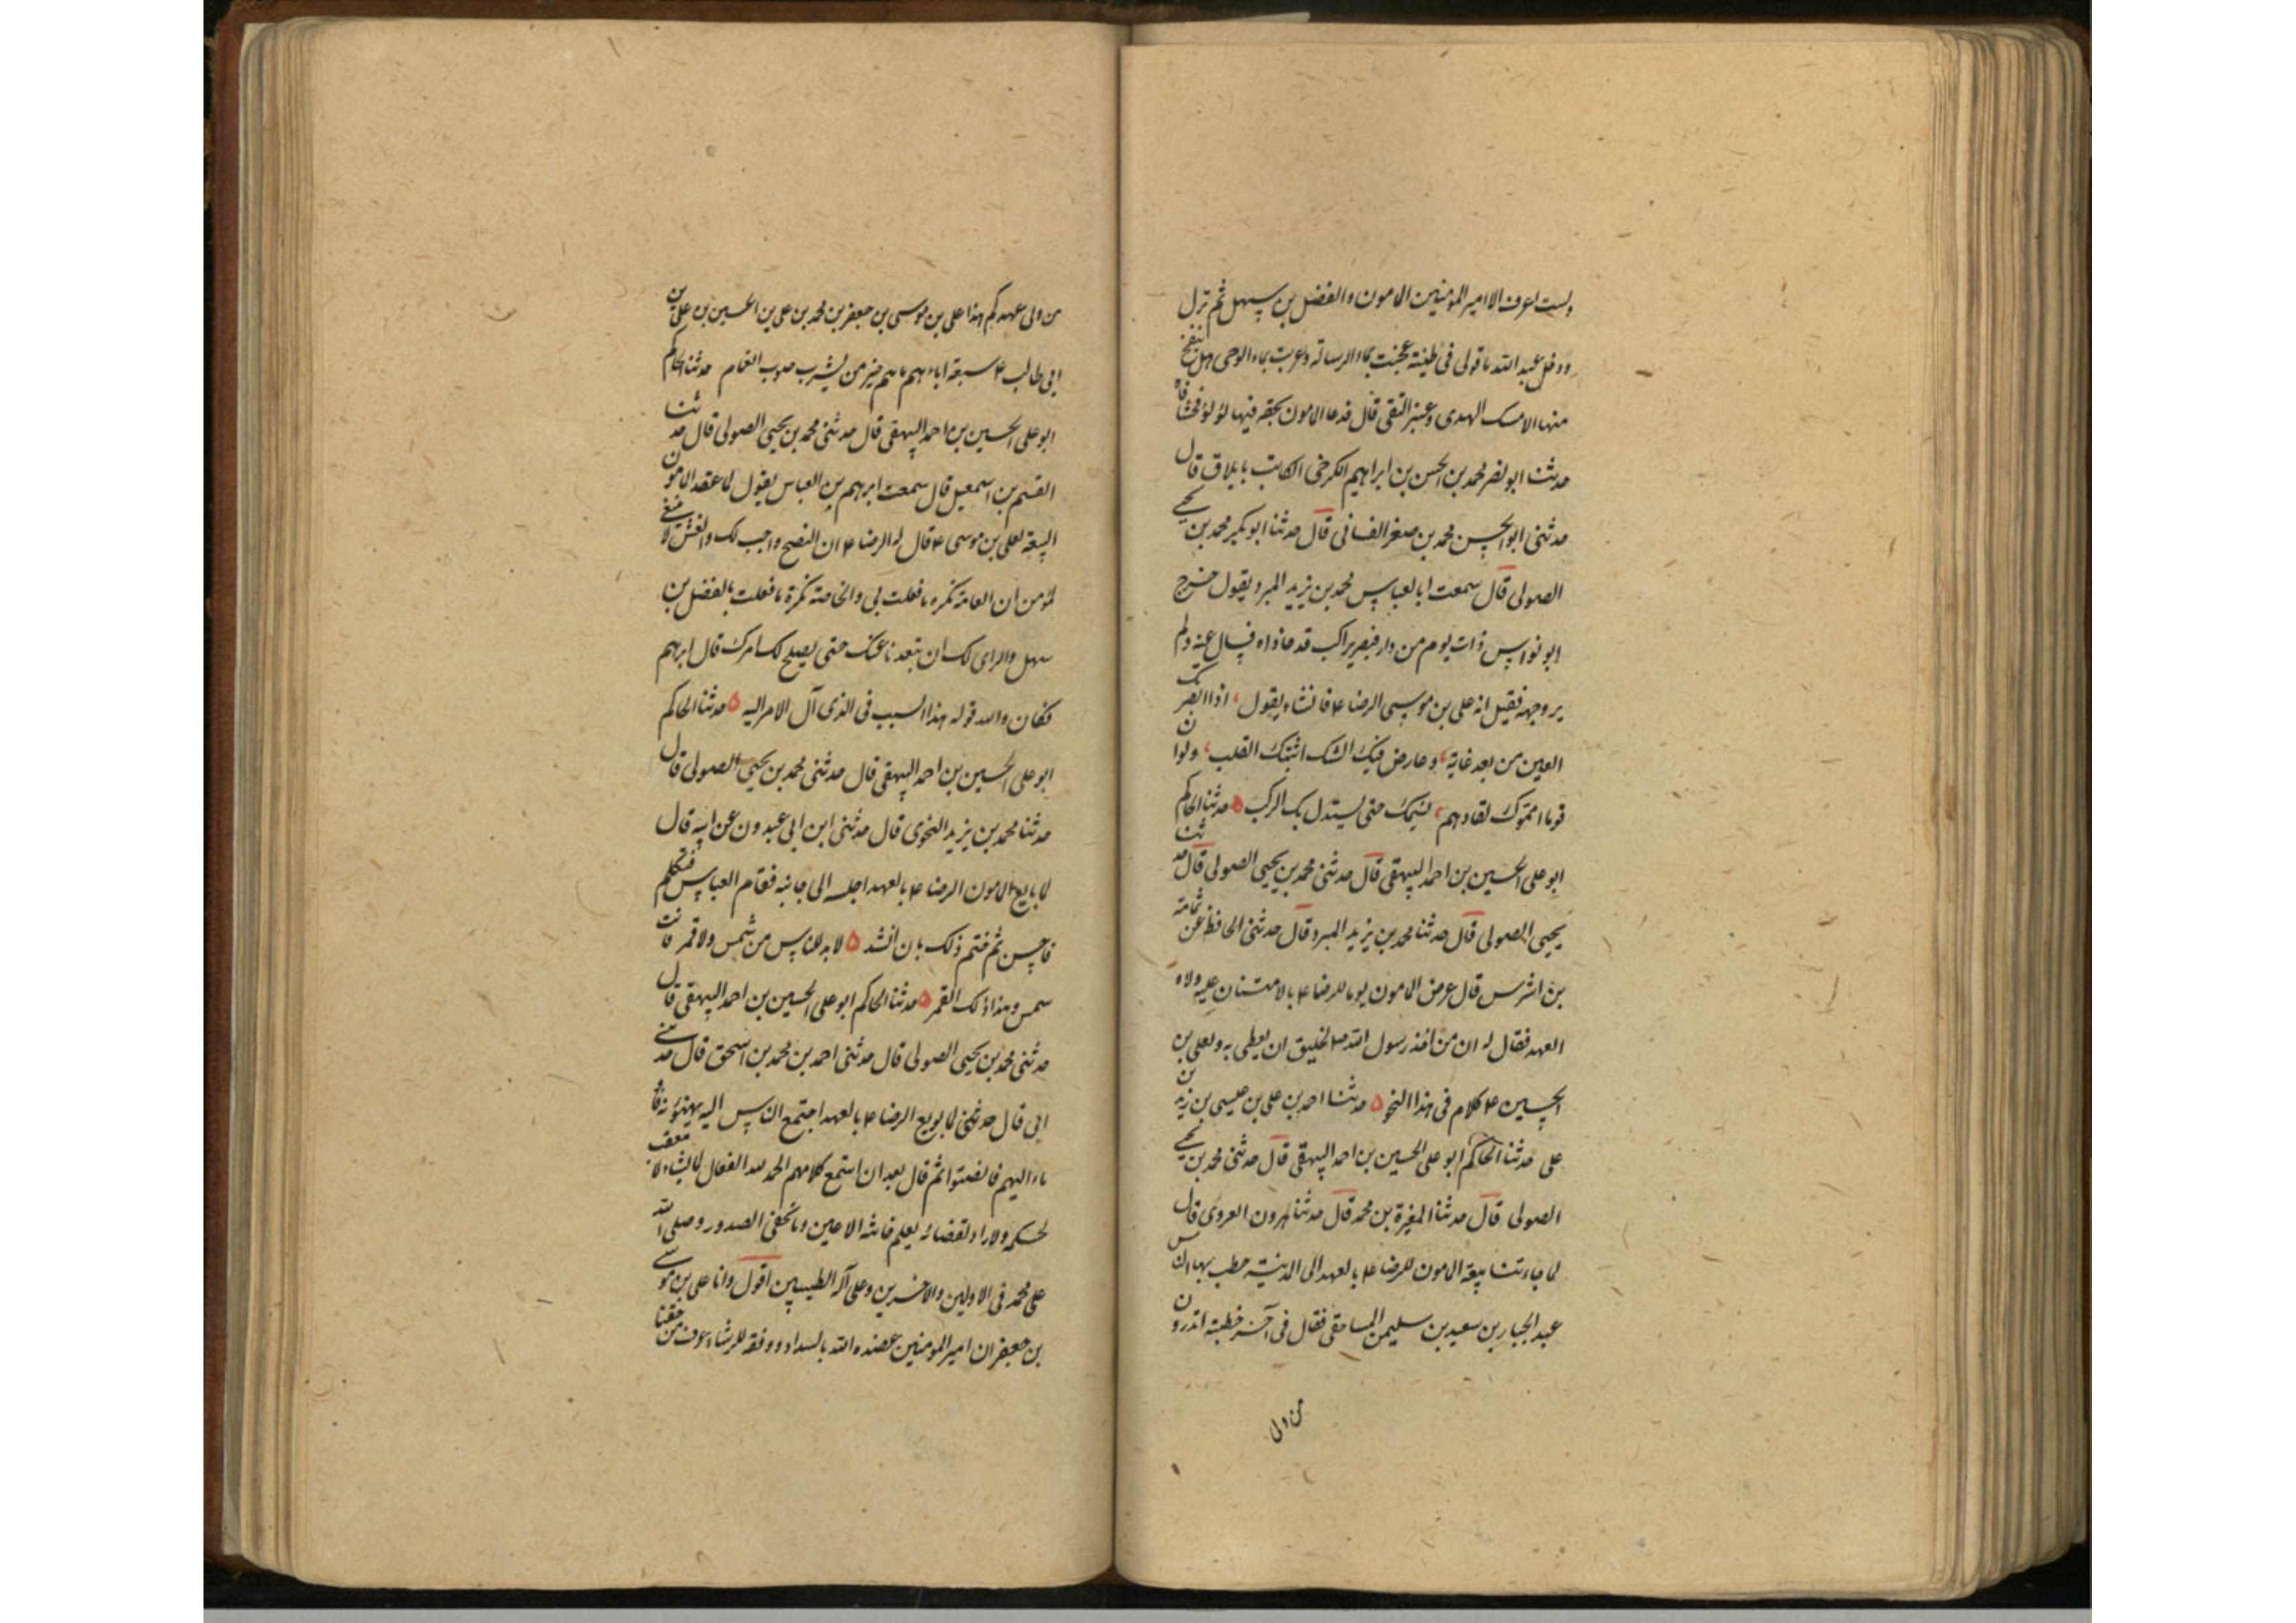 ولست اعرف الا امیر المؤمنین المامون والفضل بن سهل ثم نزل
ودخل عبد الله ما قولی فی طینة عجنت بماء الرسالة وغرست بماء الوحی هل ینفخ
منها الا مسک الهدی وعنبر التقی قال فدعا المامون بحقة فیها لؤلؤ فحشا فاه
حدثنا ابو نصر محمد بن الحسن بن ابراهیم الکرخی الکاتب بایلاق قال
حدثنی ابو الحسن محمد بن صقر الغسانی قال حدثنا ابو بکر محمد بن یحیی
الصولی قال سمعت ابا العباس محمد بن یزید المبرد یقول خرج
ابو نواس ذات یوم من دار فبصر براکب قد حاذاه فسال عنه ولم
یر وجهه فقیل انه علی بن موسی الرضا ع فانشاء یقول ، اذا ابصرتک
العین من بعد غایة ، وعارض فیک الشک اثبتک القلب ، ولو ان
قوما امموک لقادهم ، نسیمک حتی یستدل بک الرکب ۵ حدثنا الحاکم
ابو علی الحسین بن احمد البیهقی قال حدثنی محمد بن یحیی الصولی قال حدثنا
یحیی الصولی قال حدثنا محمد بن یزید المبرد قال حدثنی الحافظ عن ثمامة
بن اشرس قال عرض المامون یوما للرضا ع بالامتنان علیه ولاه
العهد فقال له ان من اخذ رسول الله ص لخلیق ان یعطی به ولعلی بن
الحسین ع کلام فی هذا النحو ۵ حدثنا احمد بن علی بن عیسی بن زید بن
علی حدثنا الحاکم ابو علی الحسین بن احمد البیهقی قال حدثنی محمد بن یحیی
الصولی قال حدثنا المغیرة بن محمد قال حدثنا هرون الفروی قال
لما جاءتنا بیعة المامون للرضا ع بالعهد الی المدینة خطب بها الناس
عبد الجبار بن سعید بن سلیمن المساحقی فقال فی آخر خطبته اتدرون
من ولی
من ولی عهدکم هذا علی بن موسی بن جعفر بن محمد بن علی بن الحسین بن علی بن
ابی طالب ع سبعة اباءهم ما هم خیر من یشرب صوب الغمام حدثنا الحاکم
ابو علی الحسین بن احمد البیهقی قال حدثنی محمد بن یحیی الصولی قال حدثنا
القسم بن اسمعیل قال سمعت ابرهیم بن العباس یقول لما عقد المامون
البیعة لعلی بن موسی ع قال له الرضا ع ان النصح واجب لک والغش لا ینبغی
لمؤمن ان العامة تکره ما فعلت بی والخاصة تکره ما فعلت بالفضل بن
سهل والرای لک ان تبعدنا عنک حتی یصلح لک امرک قال ابرهیم
فکان والله قوله هذا السبب فی الذی آل الامر الیه ۵ حدثنا الحاکم
ابو علی الحسین بن احمد البیهقی قال حدثنی محمد بن یحیی الصولی قال
حدثنا محمد بن یزید النحوی قال حدثنی ابن ابی عبدون عن ابیه قال
لما بایع المامون الرضا ع بالعهد اجلسه الی جانبه فقام العباس فتکلم
فاحسن ثم ختم ذلک بان انشد ۵ لا بد للناس من شمس ولا قمر فانت
شمس وهذا ذلک القمر ۵ حدثنا الحاکم ابو علی الحسین بن احمد البیهقی قال
حدثنی محمد بن یحیی الصولی قال حدثنی احمد بن محمد بن اسحق قال حدثنی
ابی قال حدثنی لما بویع الرضا ع بالعهد اجتمع الناس الیه یهنئونه فاو
ماء الیهم فانصتوا ثم قال بعد ان استمع کلامهم الحمد لله الفعال لما یشاء لا معقب
لحکمه ولا راد لقضائه یعلم خائنة الاعین وما تخفی الصدور وصلی الله
علی محمد فی الاولین والاخرین وعلی آله الطیبین اقول وانا علی بن موسی
بن جعفر ان امیر المومنین عضده الله بالسداد ووفقه للرشاد عرف من حقنا